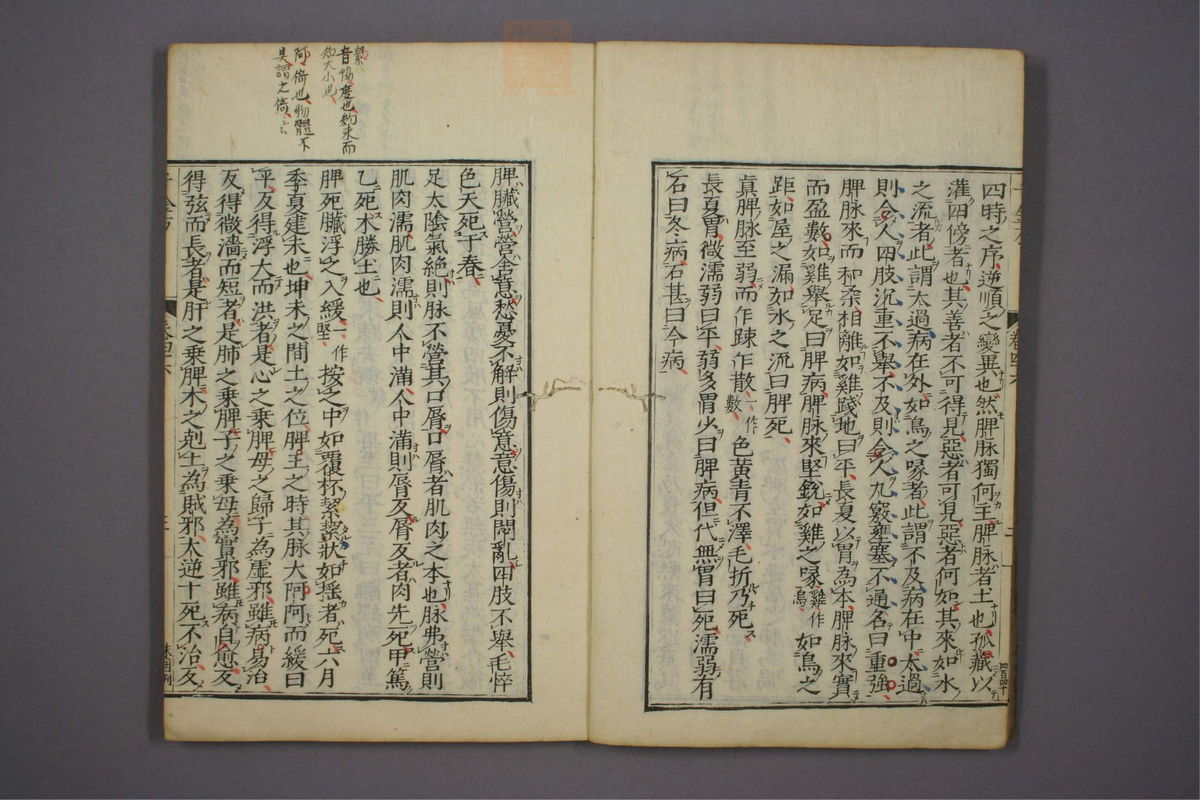 四時之序逆順之變異也然脾脉獨何主脾脉者土也孤藏以
灌四傍者也其善者不可得見惡者可見惡者何如其來如水
之流者此謂太過病在外如鳥之喙者此謂不及病在中太過
則令人四肢沉重不舉不及則令人九竅壅塞不通名曰重強
脾脉來而和柔相離如雞踐地曰平長夏以胃為本脾脉來實
而盈數如雞舉足曰脾病脾脉來堅銳如雞之喙雞一作鳥如鳥之
距如屋之漏如水之流曰脾死
真脾脉至弱而乍踈乍散一作數色黃青不澤毛折乃死
長夏胃微濡弱曰平弱多胃少曰脾病但代無胃曰死濡弱有
石曰冬病石甚曰今病
絜
音惱度也約束而
知大小也
阿倚也物體不
具謂之倚云々
脾臟營營舍意愁憂不解則傷意意傷則悶亂四肢不舉毛悴
色夭死于春
足太陰氣絕則脉不營其口脣口脣者肌肉之本也脉弗營則
肌肉濡肌肉濡則人中滿人中滿則脣反脣反者肉先死甲篤
乙死木勝土也
脾死臟浮之入緩一作堅按之中如覆杯絜絜狀如揺者死六月
季夏建未也坤未之間土之位脾王之時其脉大阿阿而緩曰
平反得浮大而洪者是心之乗脾母之歸子為虛邪雖病易治
反得微濇而短者是肺之乗脾子之乗母為實邪雖病自愈反
得弦而長者是肝之乗脾木之剋土為賊邪大逆十死不治反